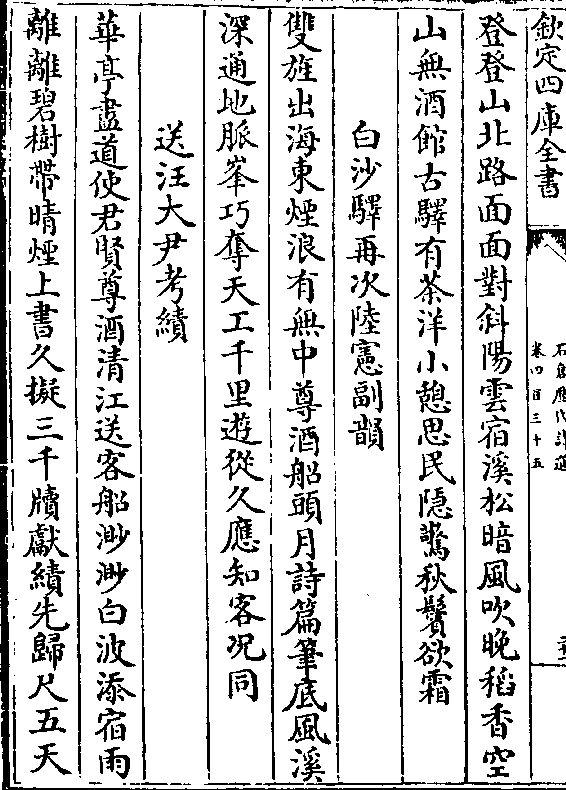 欽定四庫全書
石倉歷代詩選
卷四百三十五
登登山北路面面對斜陽雲宿溪松暗風吹晚稻香空
山無酒館古驛有茶洋小憩思民隱驚秋鬢欲霜
白沙驛再次陸憲副韻
雙旌出海東煙浪有無中尊酒船頭月詩篇筆底風溪
深通地脈峯巧奪天工千里遊從久應知客况同
送汪大尹考績
華亭盡道使君賢尊酒清江送客船渺渺白波添宿雨
離離碧樹帶晴煙上書久擬三千牘獻績先歸尺五天